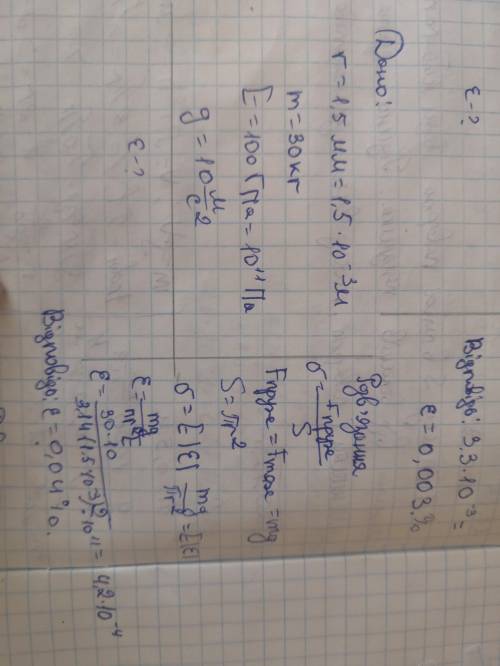 ε-?
Відповідь: 3,3·10⁻³ =
ε = 0,003.%
Дано:
r = 1,5 мм = 1,5·10⁻³ м
m = 30 кг
E = 100 ГПа = 10¹¹ Па
g = 10 м/с²
ε-?
Розв'язання
σ = Fпруж/S
Fпруж = Fтяж = mg
S = πr²
σ = E|ε| mg/πr² = E|ε|
ε = mg/πr²E
ε = 30·10/3,14(1,5·10⁻³)²·10¹¹ = 4,2·10⁻⁴
Відповідь: ε = 0,04%.